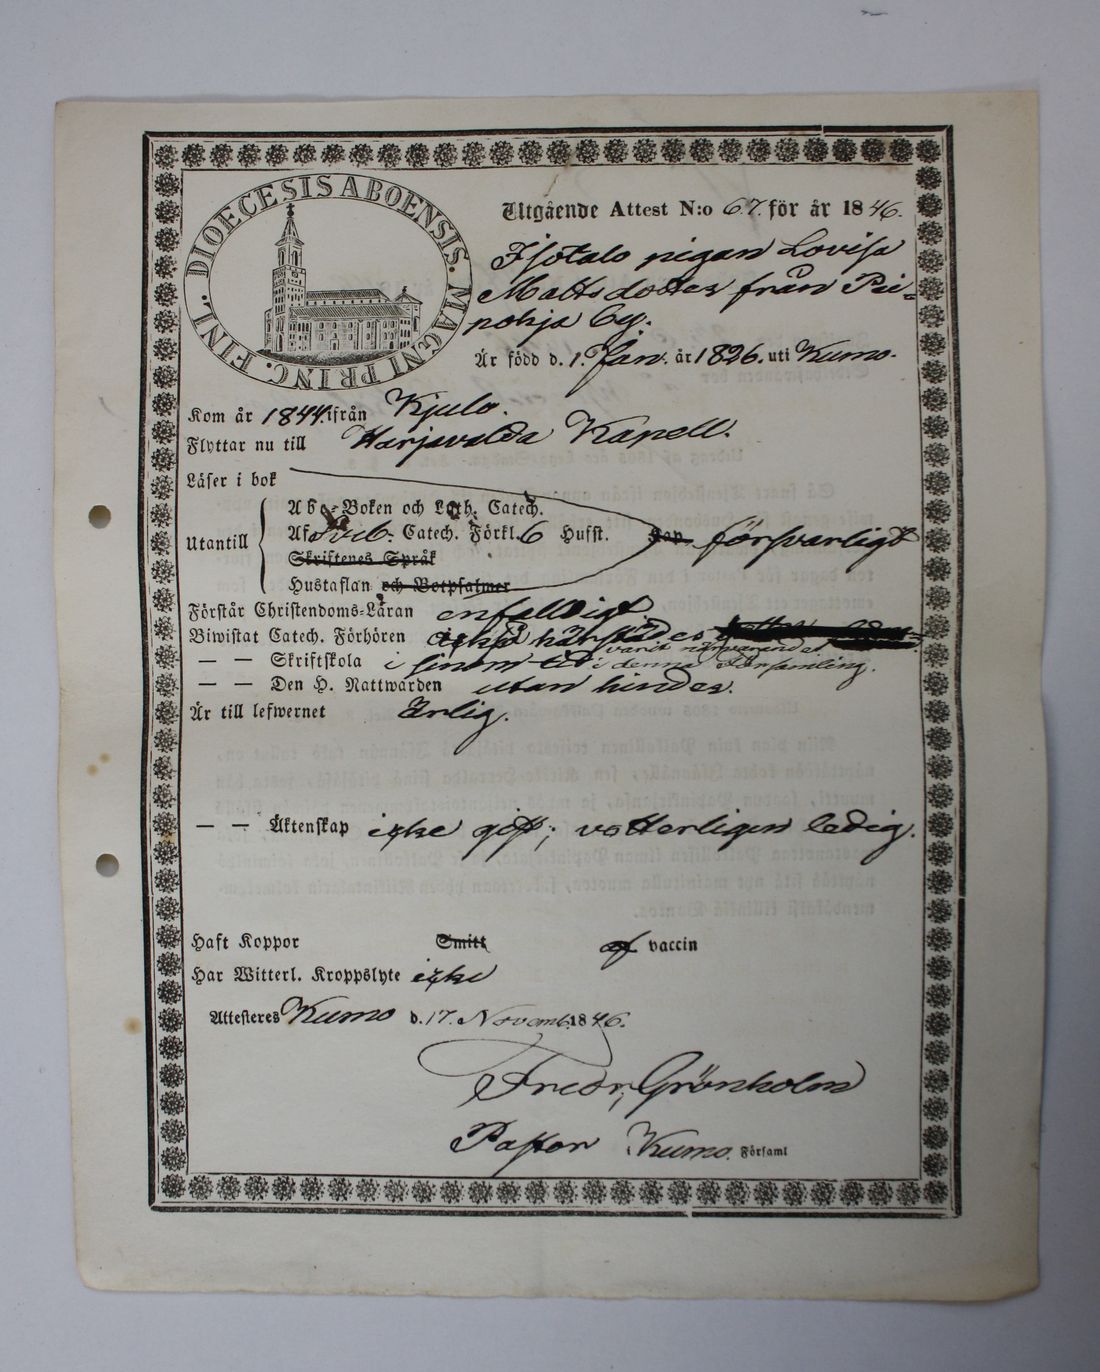 DIOECESIS ABOENSIS. MAGNI PRINC. FINL.
Utgående Attest N:o 67. för år 1846.
Isotalo pigan Lovisa
Mattsdotter från Pei-
pohja by.
Är född d. 1. Jan. år 1826. uti Kumo.
Kom år 1844. ifrån Kjulo.
Flyttar nu till Harjavalda Kapell.
Läser i bok
Abc-Boken och Luth. Catech.
Utantill Af Sveb. Catech. Förkl. 6 Hufst. försvarligt
Skriftenes Språk
Hustaflan och Botpsalmer
Förstår Christendoms-Läran enfalldigt
Biwistat Catech. Förhören härstädes
varit närvarande
— — Skriftskola i sinom tid i denna Församling.
— — Den H. Nattwarden utan hinder.
Är till lefwernet ärlig.
— — Äktenskap icke gift; vetterligen ledig.
Haft Koppor Smitt af vaccin
Har Witterl. Kroppslyte icke
Attesteras Kumo d. 17. Novemb. 1846.
Fredr. Grönholm
Pastor Kumo. Församl